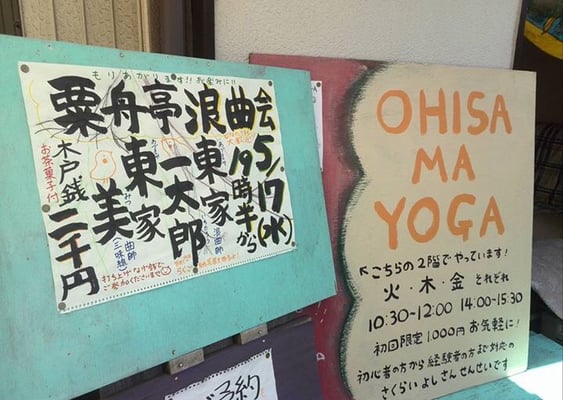 もりあがります!!お楽みに!!
粟舟亭浪曲会
5/17(水)
19時半から
東家一太郎
浪曲師
東家美
みつ
曲師
(三味線)
木戸銭二千円
お茶菓子付
打ち上げなげ銭で
ご参加くださいませ
OHISA
MA
YOGA
↖こちらの2階でやっています!
火・木・金 それぞれ
10:30~12:00 14:00~15:30
初回限定 1,000円 お気軽に!
初心者の方から経験者の方まで対応の
さくらい よしさん せんせいです
予約